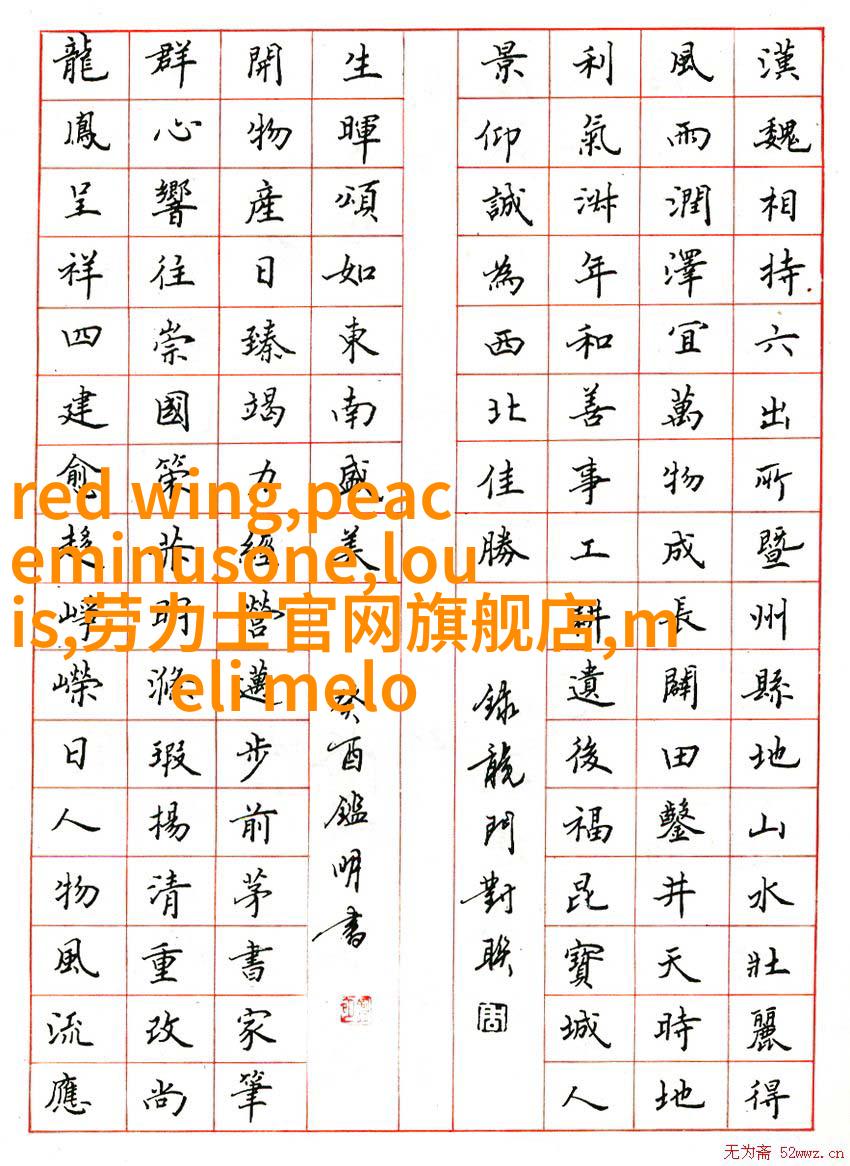 漢魏相持六出所暨州縣地山水壯麗得
風雨潤澤宜萬物成長闢田鑿井天時地
利氣淑年和善事工耕遺後福昆寶城人
景仰誠為西北佳勝
録龍門對聯
生暉頌如東南盛美
癸酉鑑明書
開物產日臻竭力經營邁步前茅書家筆
群心響往崇國策共明滌瑕揚清重改尚
龍鳳呈祥四建愈趨崢嶸日人物風流應
red wing,peac
eminusone,lou
is,劳力士官网旗舰店,m
eli melo
无为斋 52wwz.cn